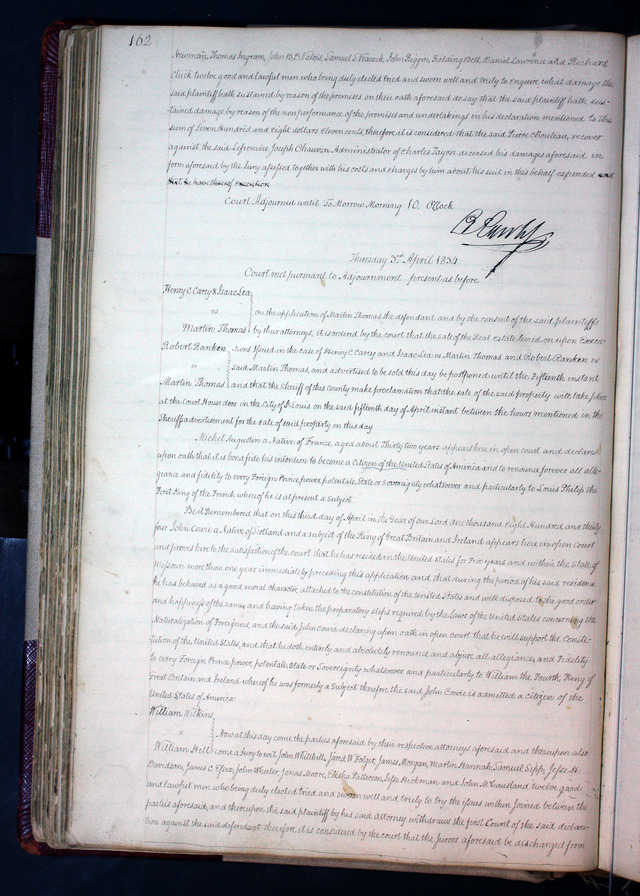 162
Newman, Thomas Ingram, John B.B. Valois, Samuel S Peacock, John Riggin, Fielding Bell, Daniel Lawrence and Richard
Chick twelve good and lawful men who being duly elected tried and sworn well and truly to Enquire what damage the
said plaintiff hath sustained by reason of the premises on their oath aforesaid do say that the said plaintiff hath sus-
tained damage by reason of the non performance of the promises and undertakings in his declaration mentioned to the
sum of Seven Hundred and Eight dollars Eleven cents, therefore it is considered that the said Pierre Chouteau, recover
against the said Lefreniere Joseph Chauvin Administrator of Charles Tayon deceased his damages aforesaid in
form aforesaid by the Jury assessed together with his costs and charges by him about his suit in this behalf expended and
that he have thereof execution
Court Adjourned until To Morrow Morning 10. OClock
Thursday 3rd April 1834
Court met pursuant to Adjournment present as before
Henry C. Carey & Isaac Lea
vs
on the application of Martin Thomas the defendant and by the consent of the said plaintiffs
Martin Thomas by their attorneys, it is ordered by the court that the sale of the Real estate levied on upon Execu-
Robert Ranken tions Issued in the case of Henry C Carey and Isaac Lea vs Martin Thomas and Robert Ranken vs
vs said Martin Thomas, and advertised to be sold this day be postponed until the Fifteenth instant
Martin Thomas and that the Sheriff of this County make proclamation that the sale of the said property will take place
at the Court House door in the City of St Louis on the said fifteenth day of April instant between the hours mentioned in the
Sheriffs advertisement for the sale of said property on this day
Michel Augustin a Native of France aged about Thirty two years appears here in open court and declares
upon oath that it is bonafide his intention to become a Citizen of the United States of America and to renounce forever all alle-
giance and fidelity to every Foreign Prince, power, potentate, State or Sovereignty whatsoever and particularly to Louis Philip the
First King of the French whereof he is at present a Subject.
Be it Remembered that on this third day of April in the Year of our Lord one thousand Eight Hundred, and thirty
four John Cowie a Native of Scotland and a subject of the King of Great Britain and Ireland appears here in open Court
and proves here to the satisfaction of the court that he has resided in the United States for Five years and within the State of
Missouri more than one year immediately preceding this application and that during the period of his said residence
he has behaved as a good moral character, attached to the constitution of the United States and well disposed to the good order
and happiness of the same, and having taken the preparatory steps required by the Laws of the United States concerning the
Naturalization of Foreigners, and the said John Cowie declaring upon oath in open court that he will support the Consti-
tution of the United States, and that he doth entirely and absolutely renounce and abjure all allegiance, and Fidelity
to every Foreign Prince, power, potentate, State or Sovereignty whatsoever and particularly to William the Fourth, King of
Great Britain and Ireland whereof he was formerly a Subject therefore the said John Cowie is admitted a citizen of the
United States of America.
William Wilkins
Now at this day come the parties aforesaid by their respective attorneys aforesaid and thereupon also
William Hill come a Jury to wit John Whitehill, Jared W Folger, James Morgan, Martin Hannah, Samuel Sipp, Jesse H.
Davidson, James C. John Wheeler, Jonas Moore, Elisha Patterson, Jesse Hickman and John McCausland twelve good
and lawful men who being duly elected tried and sworn well and truly to try the issues within joined between the
parties aforesaid, and thereupon the said plaintiff by his said attorney withdraws the first Count of the said declara-
tion against the said defendant, therefore it is considered by the court that the Jurors aforesaid be discharged from